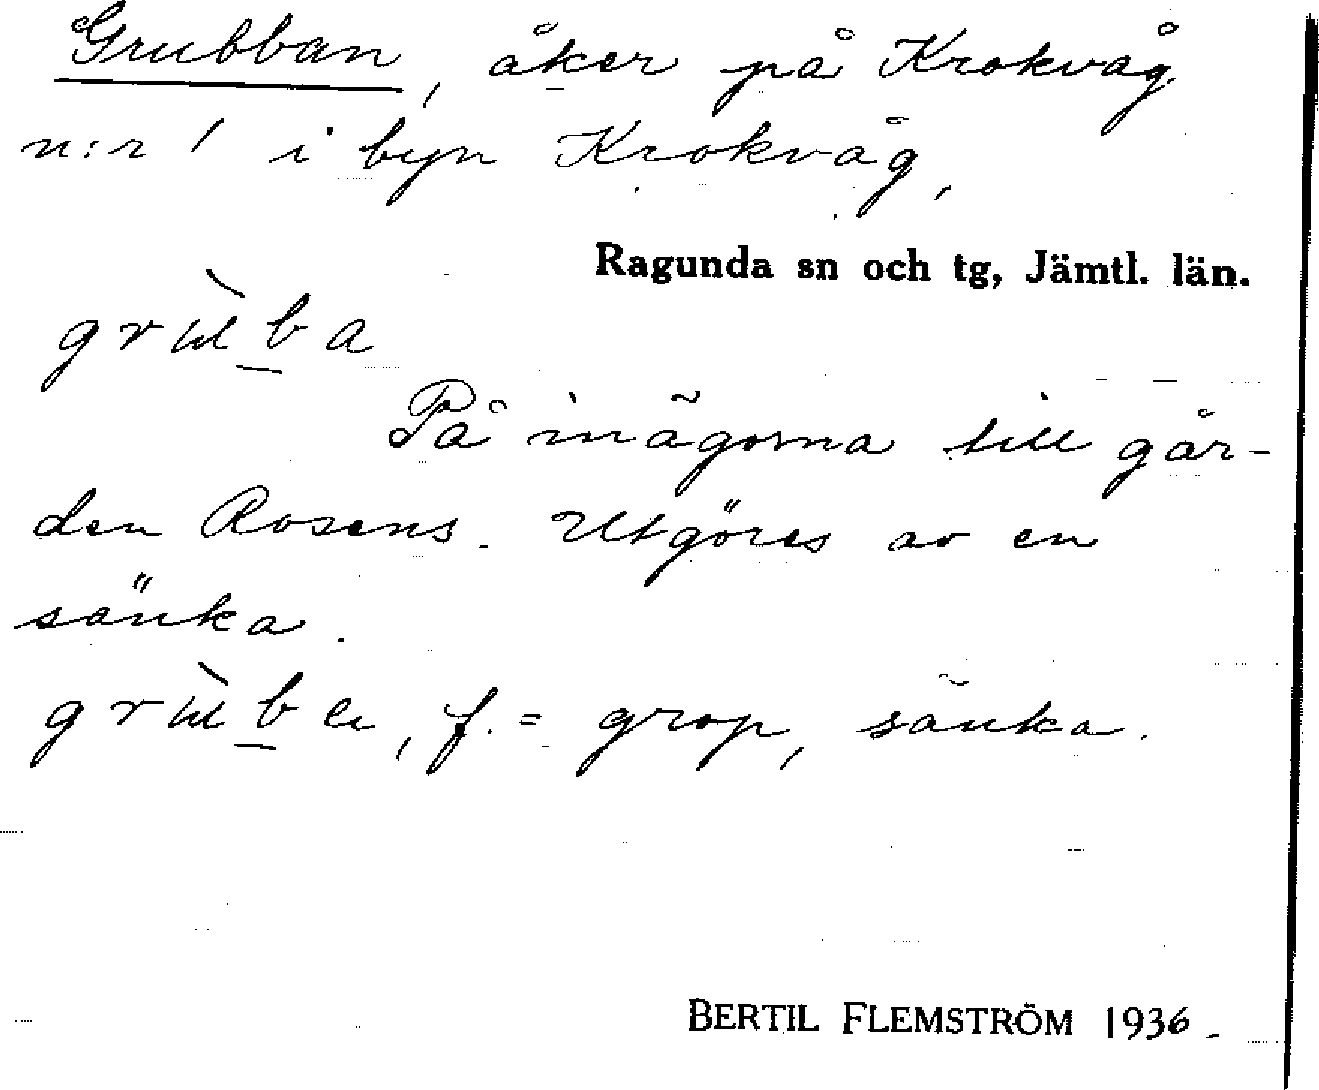 Grubban, åker på Krokvåg
n:r 1 i byn Krokvåg,
Ragunda sn och tg, Jämtl. län.
grùb̲a
På inägorna till går-
den Rosens. Utgöres av en
sänka.
grùb̲a, f. = grop, sänka.
BERTIL FLEMSTRÖM 1936.